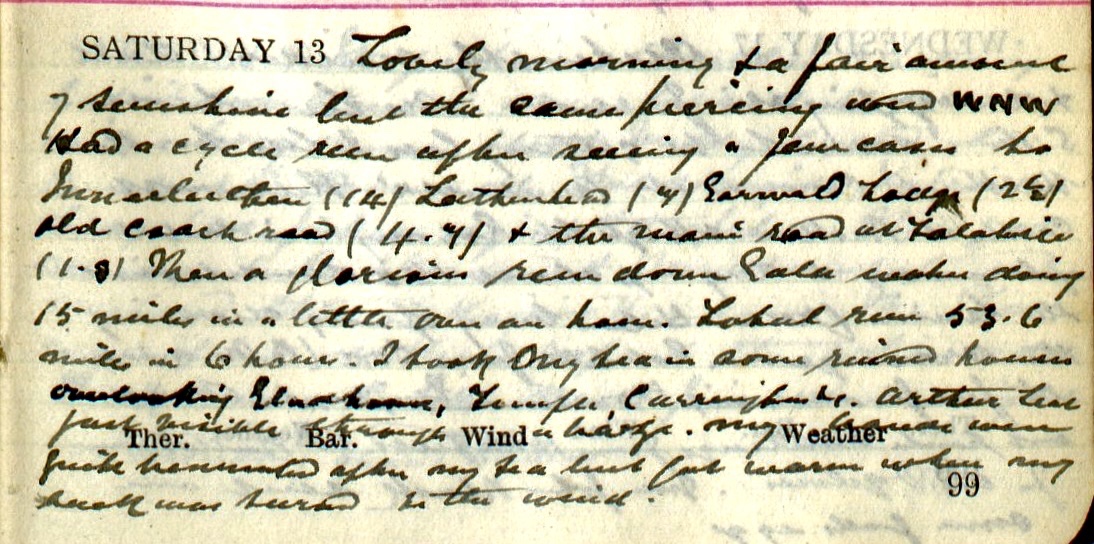 SATURDAY 13 Lovely morning & a fair amount
of sunshine but the same piercing wind WNW
Had a cycle run after seeing a few cases to
Innerleithen (14) Leithenhead (7) Garvald Lodge (2½)
old coach road (4.7) & the main road at Falahill
(1.8) Then a glorious run down Gala water doing
15 miles in a little over an hour. Total run 53.6
miles in 6 hours. I took my tea in some ruined houses
overlooking Temple, Carrington. Arthur Seat
just visible through a haze. My hands were
quite benumbed after my tea but got warm when my
back was turned to the wind.
Ther. Bar. Wind Weather
99